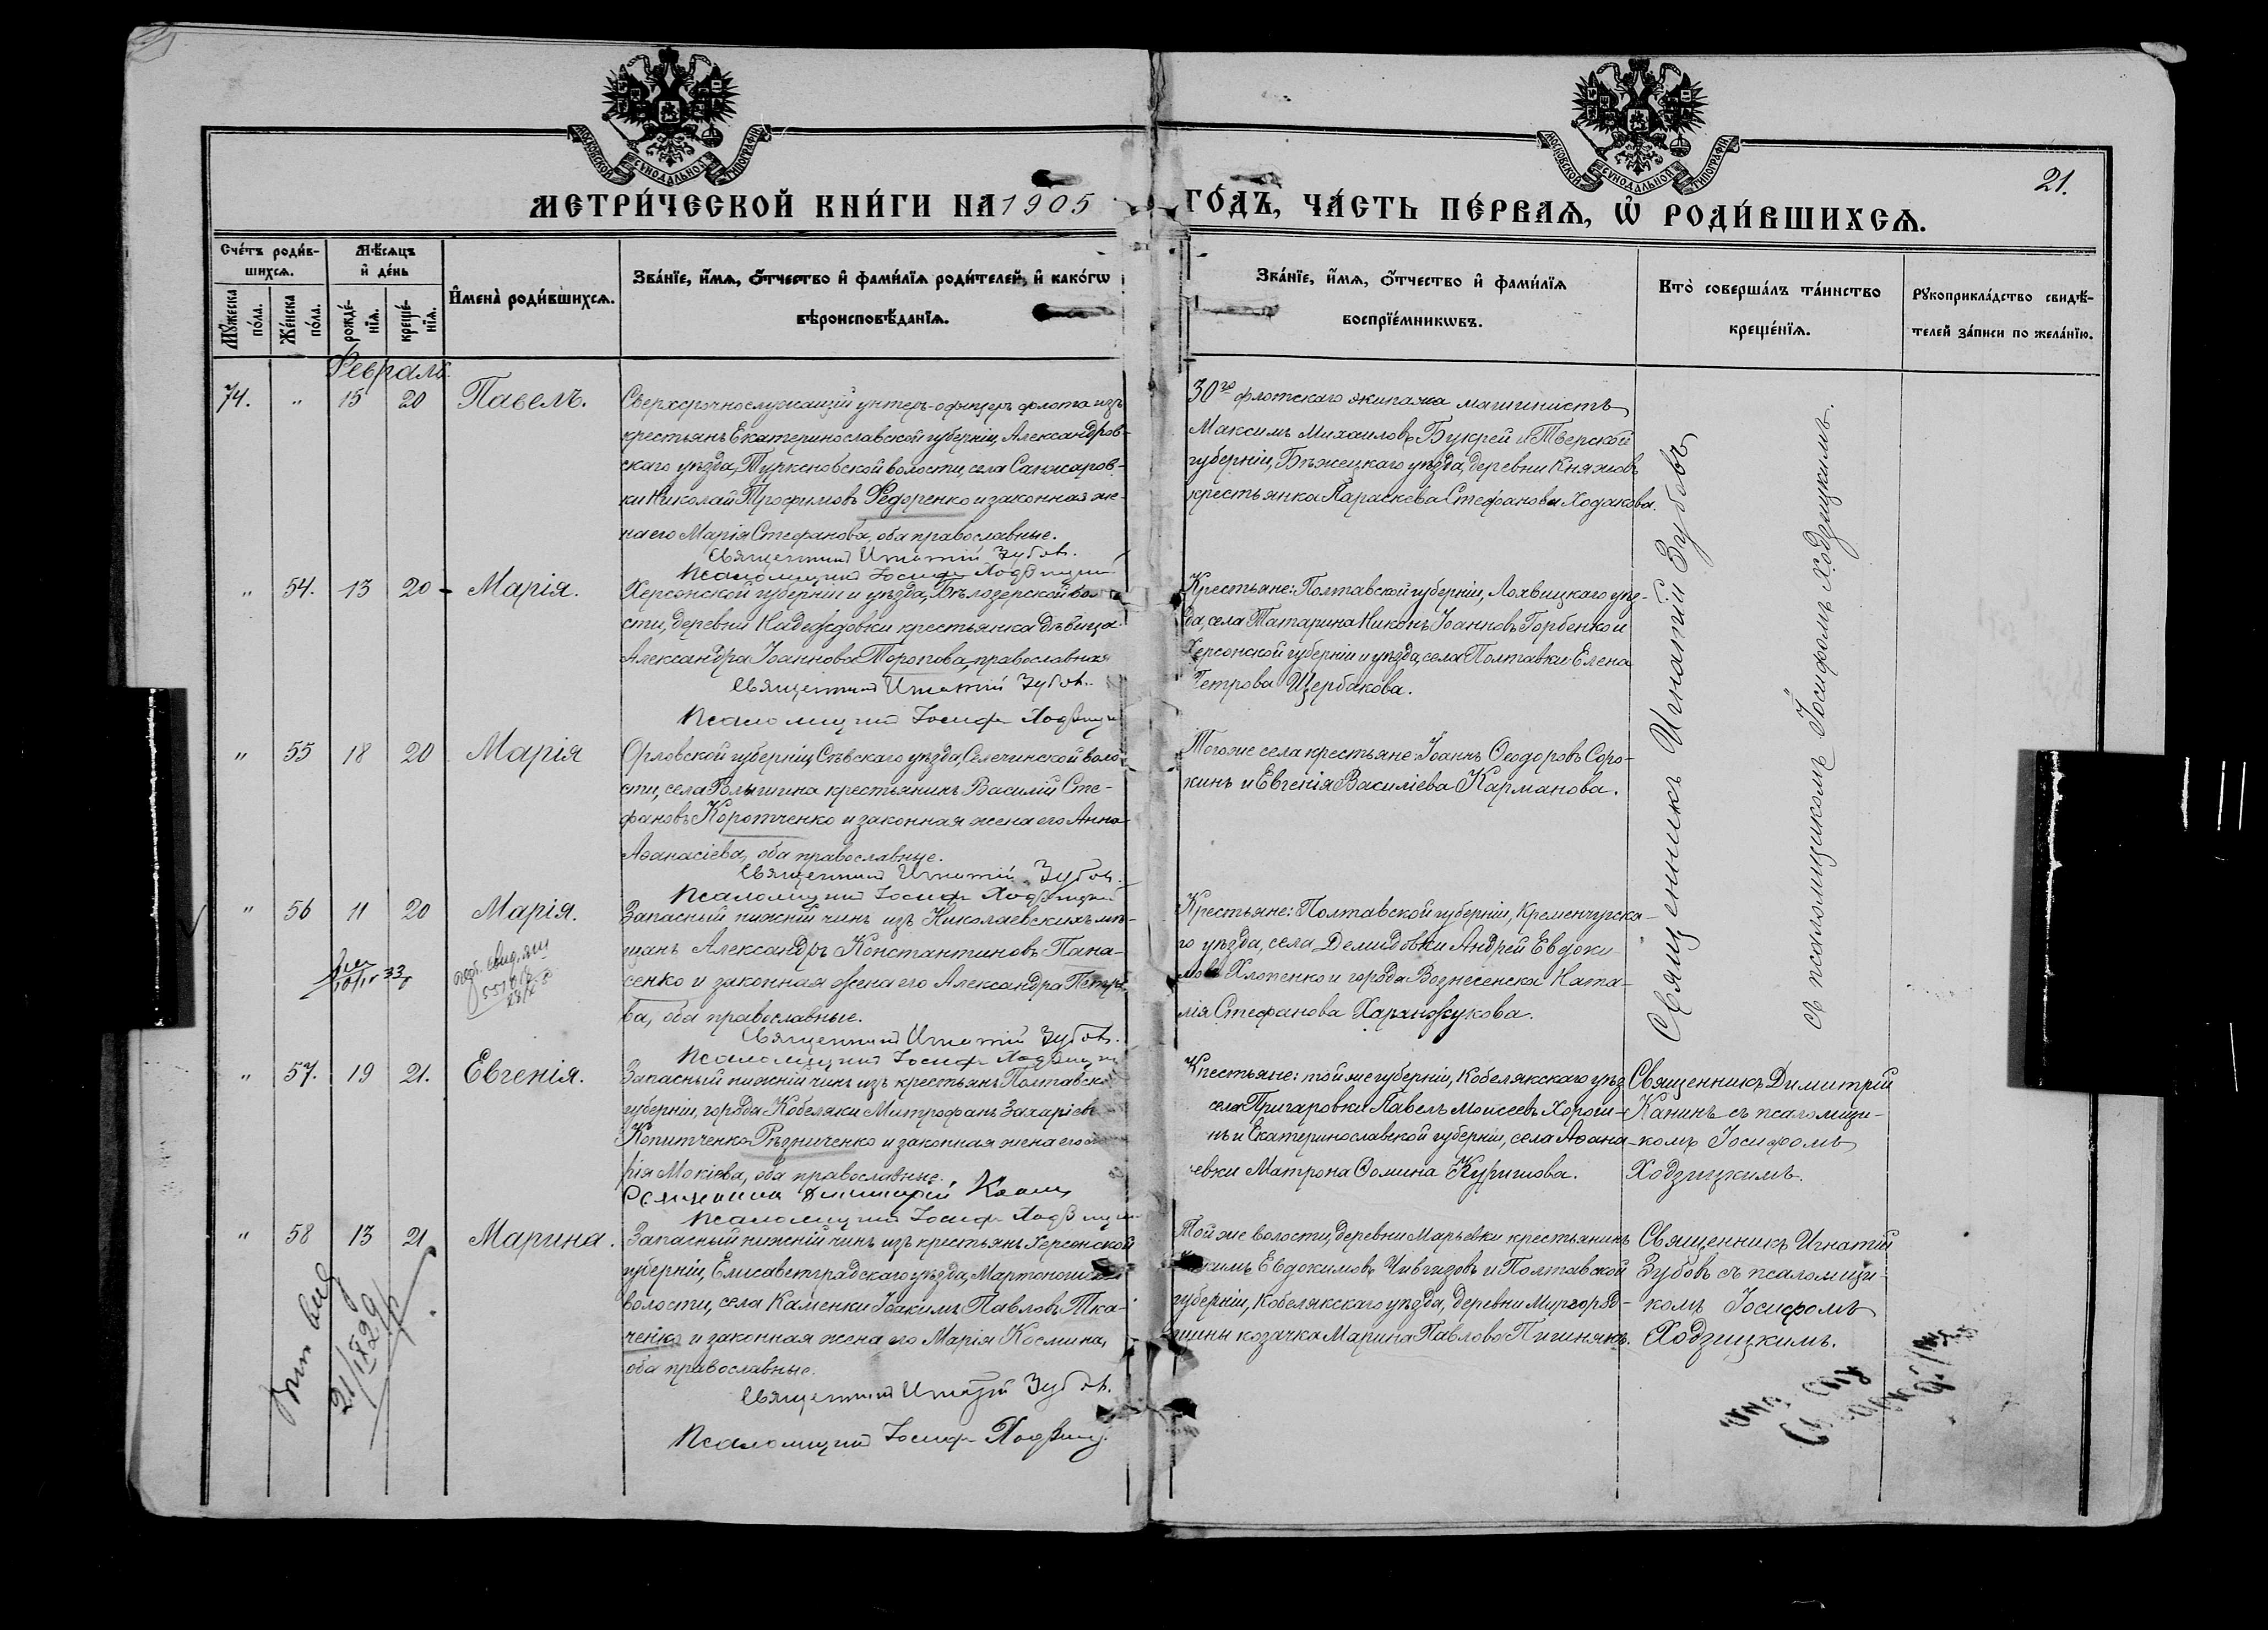 МОСКОВСКОЙ СѴНОДАЛЬНОЙ ТИПОГРАФІИ
МОСКОВСКОЙ СѴНОДАЛЬНОЙ ТИПОГРАФІИ
21.
МЕТРИ́ЧЕСКОЙ КНИ́ГИ НА 1905 ГО́ДЪ, ЧА́СТЬ ПЕ́РВАѦ, Ѡ҆ РОДИ́ВШИХСѦ.
Сче́тъ роди́в-
шихсѧ.
Мѣ́сѧцъ
и҆ де́нь
Мꙋ́жеска
по́ла.
Же́нска
по́ла.
рожде́-
нїѧ.
креще́-
нїѧ.
И҆мена̀ роди́вшихсѧ.
Зва́нїе, и҆́мѧ, ѻ҆́тчество и҆ фами́лїѧ роди́телей, и҆ како́гѡ
вѣроисповѣ́данїѧ.
Зва́нїе, и҆́мѧ, ѻ҆́тчество и҆ фами́лїѧ
воспрїе́мникѡвъ.
Кто̀ соверша́лъ та́инство
креще́нїѧ.
Рꙋкоприкла́дство свидѣ́-
телей за́писи по жела́нїю.
Февраль.
74. " 15 20 Павелъ.
Сверхсрочнослужащій унтеръ-офицеръ флота изъ
крестьянъ Екатеринославской губерніи, Александров-
скаго уѣзда, Туркеновской волости, села Санжаров-
ки Николай Трофимовъ Федоренко и законная же-
на его Марія Стефанова, оба православные.
Священникъ Игнатій Зубовъ.
Псаломщикъ Іосифъ Ходзицкій
30го флотскаго экипажа машинистъ
Максимъ Михаиловъ Букрей и Тверской
губерніи, Бѣжецкаго уѣзда, деревни Княжовъ
крестьянка Параскева Стефанова Ходакова.
Священникъ Игнатій Зубовъ
съ псаломщикомъ Іосифомъ Ходзицкимъ.
" 54. 13 20 Марія.
Херсонской губерніи и уѣзда, Бѣлозерской воло-
сти, деревни Надеждовки крестьянка дѣвица
Александра Іоаннова Торопова, православная
Священникъ Игнатій Зубовъ.
Псаломщикъ Іосифъ Ходзицкій
Крестьяне: Полтавской губерніи, Лохвицкаго уѣз-
да, села Татарина Никонъ Іоанновъ Горбенко и
Херсонской губерніи и уѣзда, села Полтавки Елена
Петрова Щербакова.
" 55 18 20 Марія
Орловской губерніи, Сѣвскаго уѣзда, Селечинской воло-
сти, села крестьянинъ Василій Сте-
фановъ Коротченко и законная жена его Анна
Аѳанасіева, оба православные.
Священникъ Игнатій Зубовъ.
Псаломщикъ Іосифъ Ходзицкій
Того же села крестьяне: Іоаннъ Ѳеодоровъ Соро-
кинъ и Евгенія Василіева Карманова.
" 56 11 20 Марія.
Запасный нижній чинъ изъ Николаевскихъ мѣ-
щанъ Александръ Константиновъ Пана-
сенко и законная жена его Александра Петро-
ва, оба православные.
Священникъ Игнатій Зубовъ.
Псаломщикъ Іосифъ Ходзицкій
Крестьяне: Полтавской губерніи, Кременчугска-
го уѣзда, села Демидовки Андрей Евдоки-
мовъ Хлопенко и города Вознесенска Ната-
лія Стефанова Харанжукова.
" 57. 19 21. Евгенія.
Запасный нижній чинъ изъ крестьянъ Полтавской
губерніи, города Кобеляки Митрофанъ Захаріевъ
Копитченко-Рѣзниченко и законная жена его Ма-
рія Мокіева, оба православные.
Священникъ Димитрій Канинъ
Псаломщикъ Іосифъ Ходзицкій
Крестьяне: той же губерніи, Кобелякскаго уѣз.
села Пригаровки Павелъ Моисеевъ Хороши-
нъ и Екатеринославской губерніи, села Аѳана-
евки Матрона Ѳомина Куришова.
Священникъ Димитрій
Канинъ съ псаломщи-
комъ Іосифомъ
Ходзицкимъ.
" 58 13 21 Марина.
Запасный нижній чинъ изъ крестьянъ Херсонской
губерніи, Елисаветградскаго уѣзда, Мартоношской
волости, села Каменки Іоакимъ Павловъ Тка-
ченко и законная жена его Марія Космина,
оба православные.
Священникъ Игнатій Зубовъ.
Псаломщикъ Іосифъ Ходзицкій
Той же волости, деревни Марьевки крестьянинъ
Евдокимовъ Чивгизовъ и Полтавской
губерніи, Кобелякскаго уѣзда, деревни Миргород-
щины козачка Марина Павлова Пигинякъ.
Священникъ Игнатій
Зубовъ съ псаломщи-
комъ Іосифомъ
Ходзицкимъ.